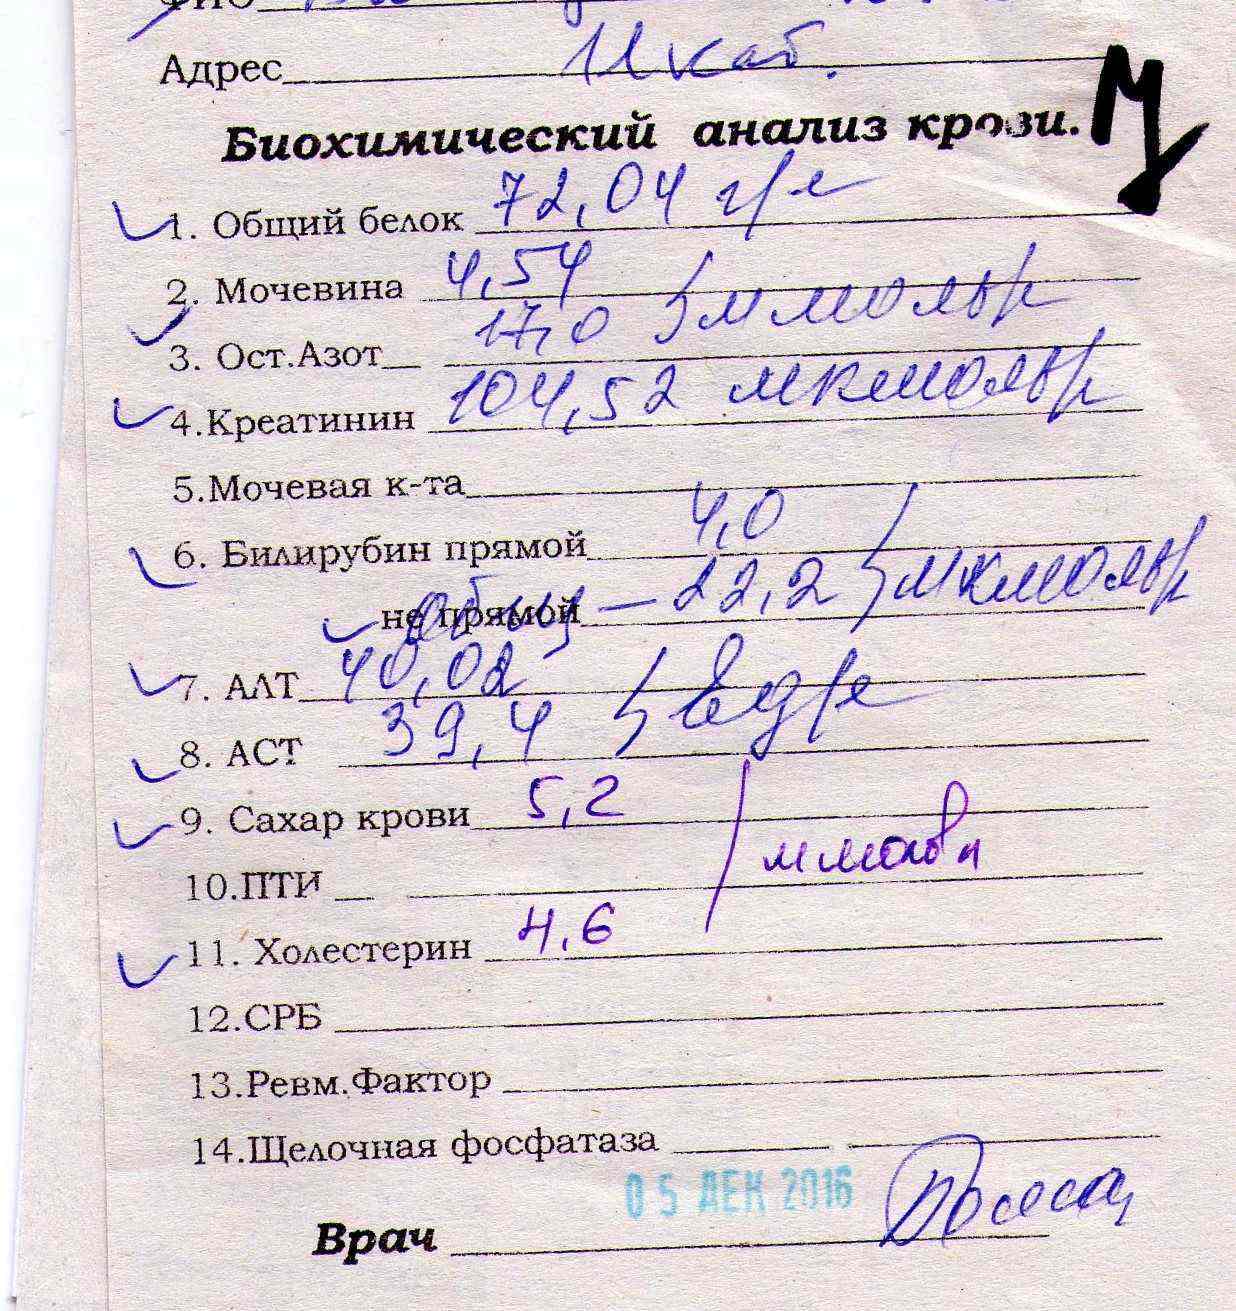 ФИО
Адрес 11 каб.
Биохимический анализ крови.
1. Общий белок 72,04 г/л
2. Мочевина 4,54
3. Ост.Азот 17,0 } ммоль/л
4.Креатинин 104,52 мкмоль/л
5.Мочевая к-та
6. Билирубин прямой 4,0
не прямой общ — 22,2 } мкмоль/л
7. АЛТ 40,02
8. АСТ 39,4 } Ед/л
9. Сахар крови 5,2
ммоль/л
10.ПТИ
11. Холестерин 4,6
12.СРБ
13.Ревм.Фактор
14.Щелочная фосфатаза
05 ДЕК 2016
Врач